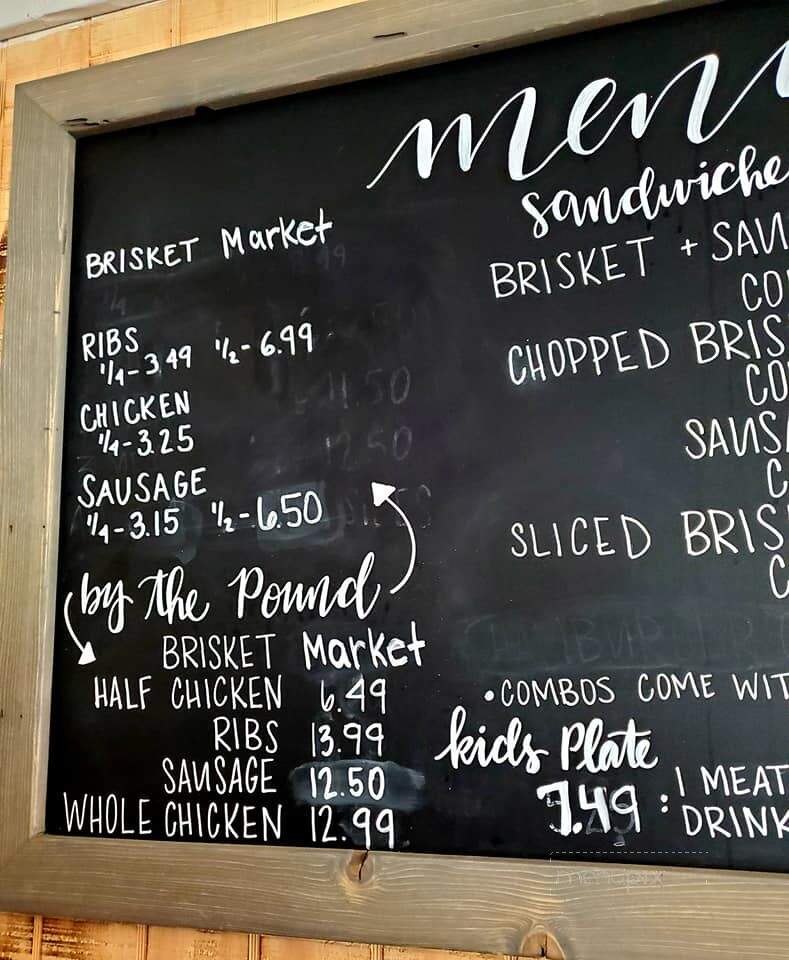 menu
BRISKET Market
RIBS
1/4-3.49 1/2-6.99
CHICKEN
1/4-3.25
SAUSAGE
1/4-3.15 1/2-6.50
by the Pound
BRISKET Market
HALF CHICKEN 6.49
RIBS 13.99
SAUSAGE 12.50
WHOLE CHICKEN 12.99
sandwiche
BRISKET + SAU
CO
CHOPPED BRIS
CO
SAUSA
C
SLICED BRIS
C
•COMBOS COME WIT
kids Plate
7.49 : 1 MEAT
DRINK